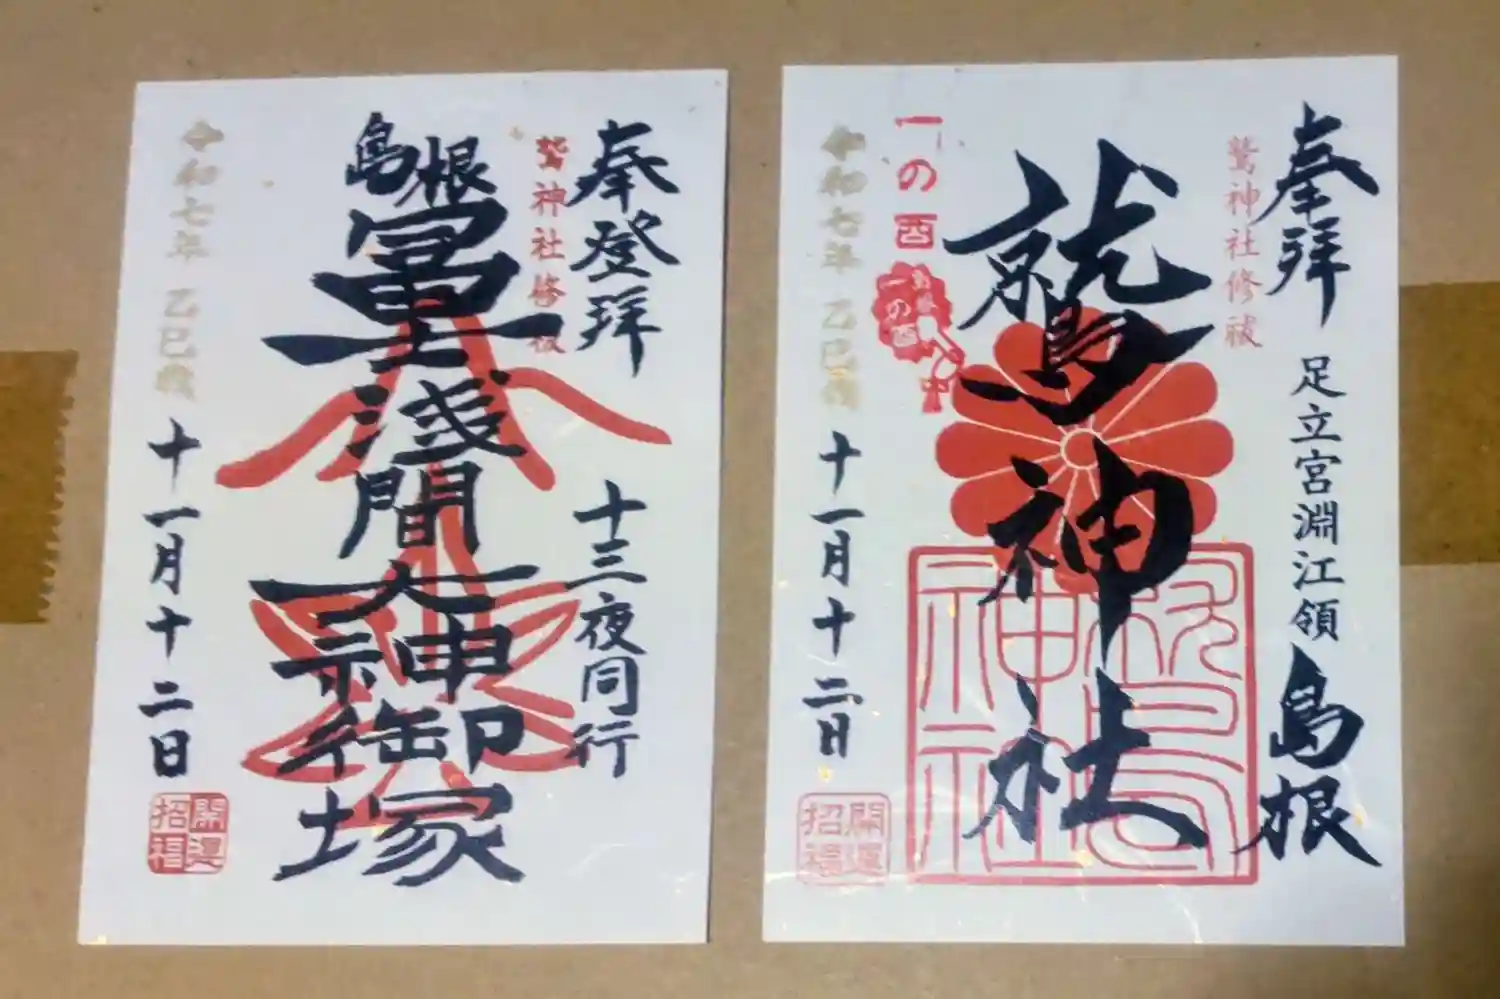 奉登拝
十三夜同行
鷲神社修祓
島根
富士浅間大神御塚
令和七年 乙巳歳
十一月十二日
開運
招福
奉拝
足立宮淵江領
島根
鷲神社修祓
鷲神社
一の酉
島根
一の酉
神社
令和七年 乙巳歳
十一月十二日
開運
招福